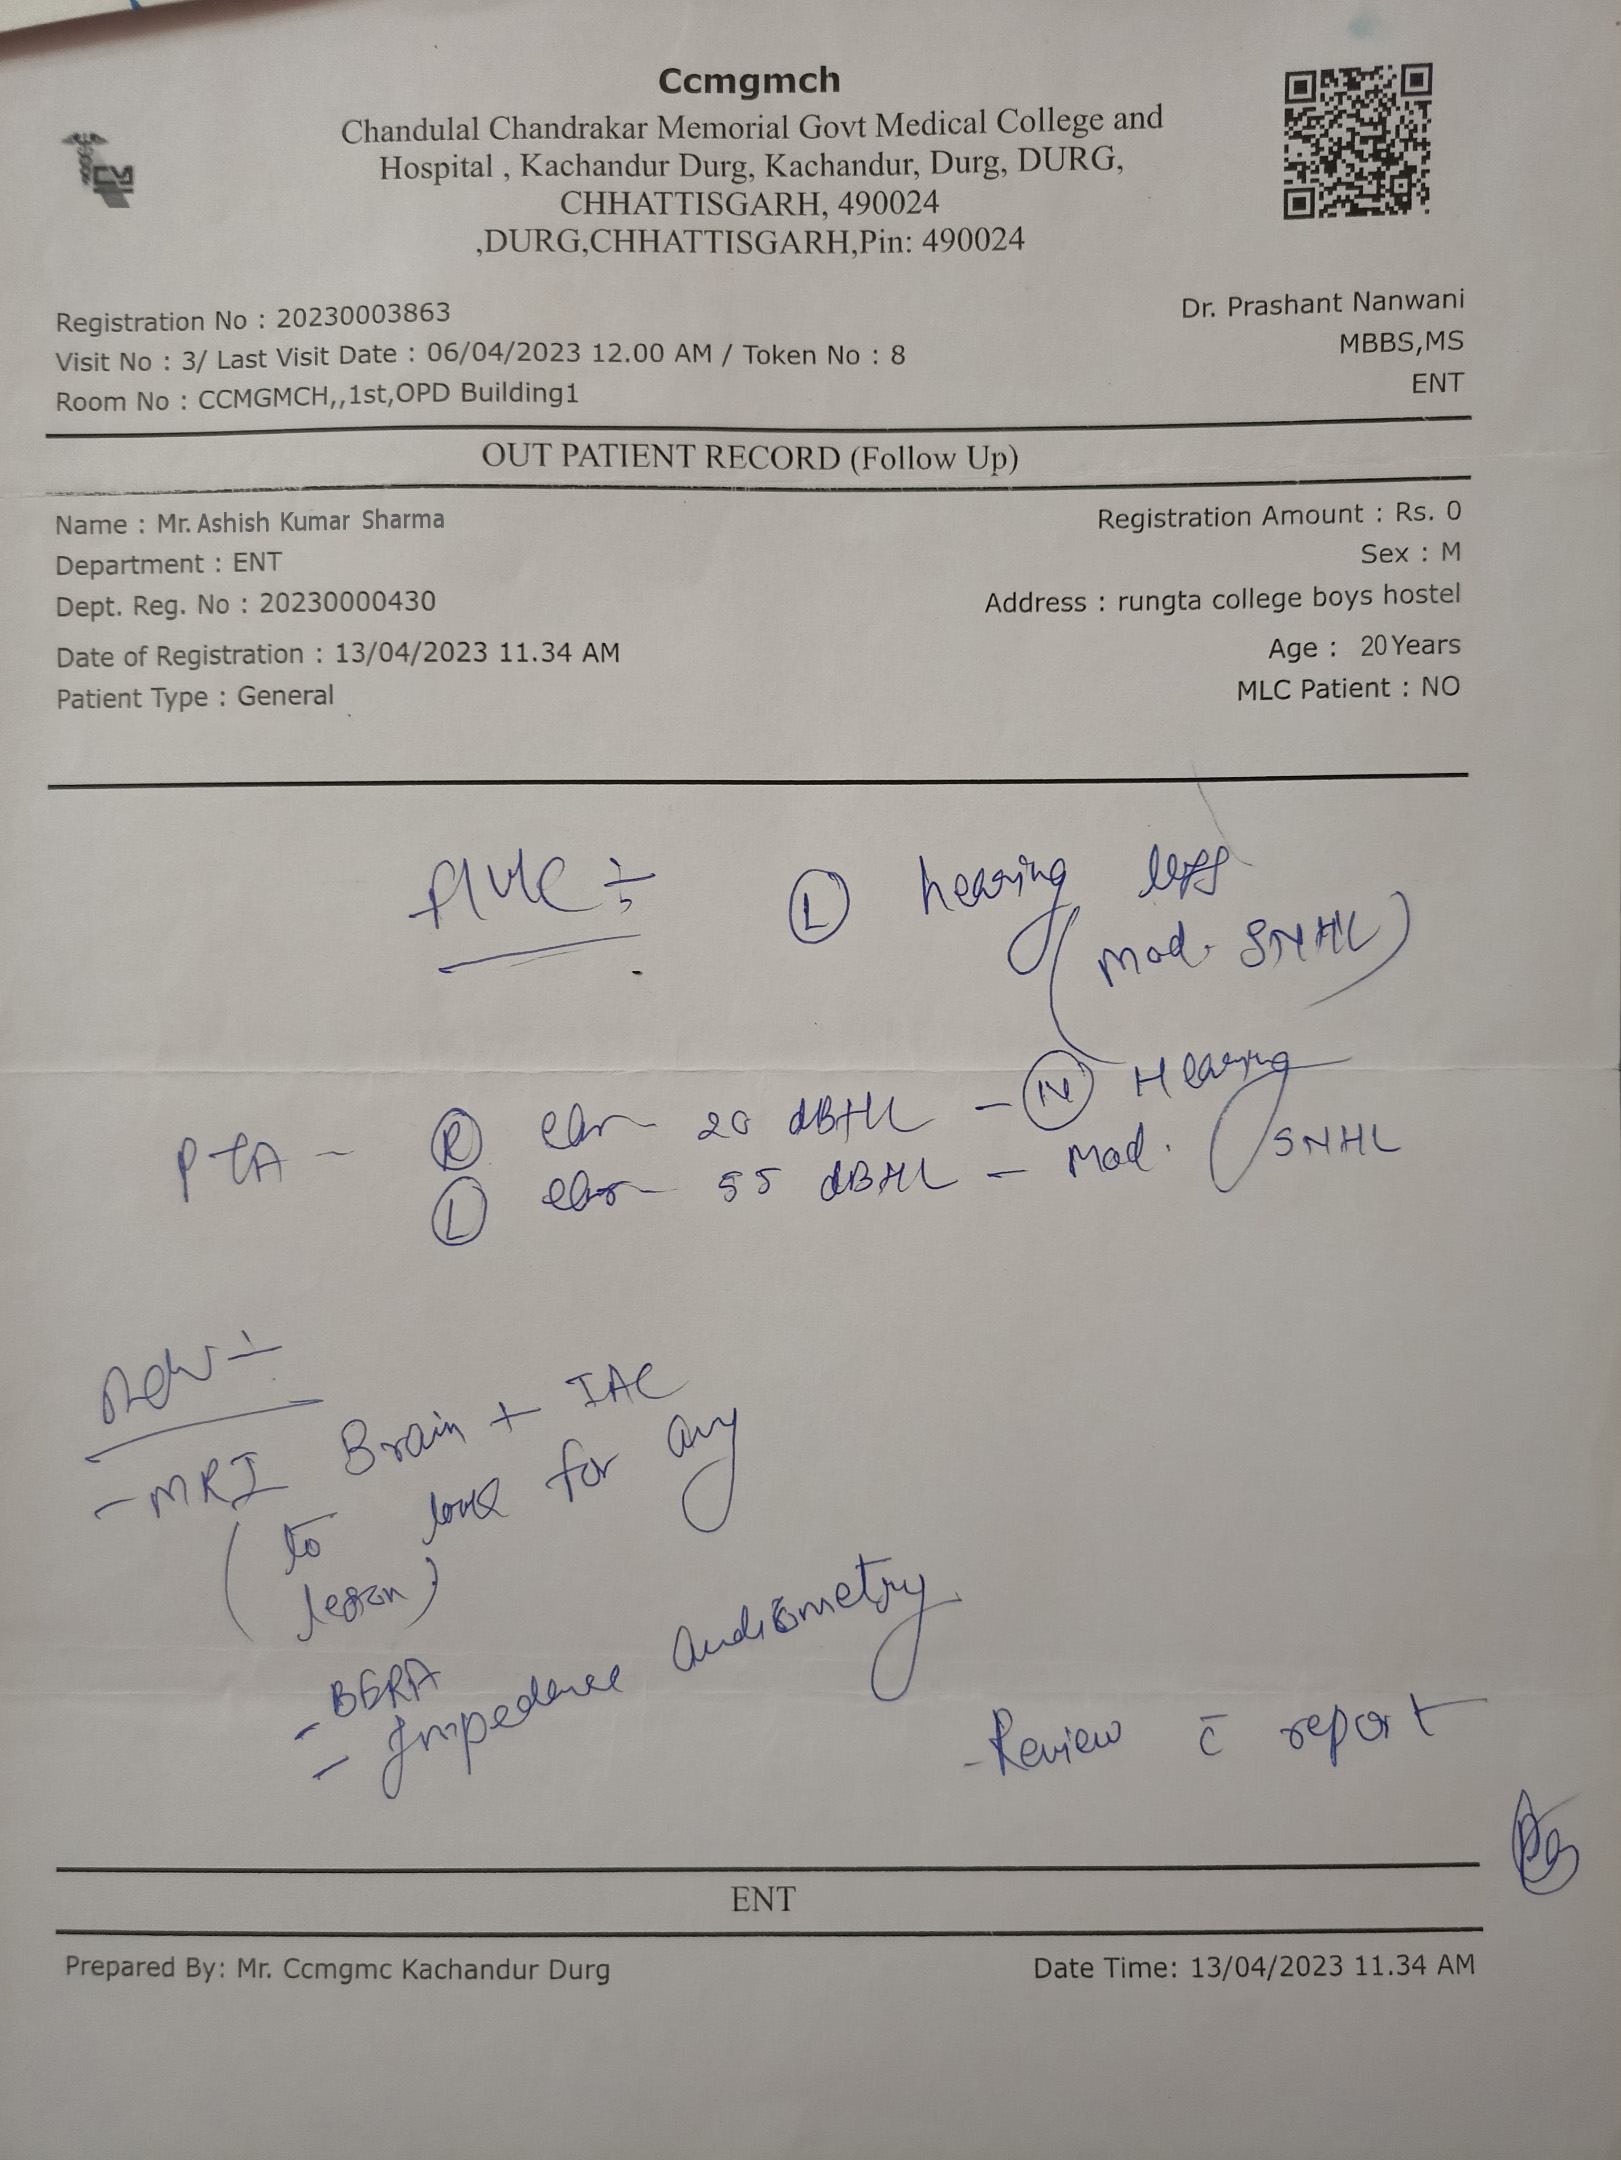 Ccmgmch
Chandulal Chandrakar Memorial Govt Medical College and
Hospital , Kachandur Durg, Kachandur, Durg, DURG,
CHHATTISGARH, 490024
,DURG,CHHATTISGARH,Pin: 490024
Registration No : 20230003863
Visit No : 3/ Last Visit Date : 06/04/2023 12.00 AM / Token No : 8
Room No : CCMGMCH,,1st,OPD Building1
Dr. Prashant Nanwani
MBBS,MS
ENT
OUT PATIENT RECORD (Follow Up)
Name : Mr. Ashish Kumar Sharma
Department : ENT
Dept. Reg. No : 20230000430
Date of Registration : 13/04/2023 11.34 AM
Patient Type : General
Registration Amount : Rs. 0
Sex : M
Address : rungta college boys hostel
Age : 20 Years
MLC Patient : NO
L hearing loss
(Mod. SNHL)
PTA - R ear 20 dBHL - N Hearing
L ear 55 dBHL - Mod. SNHL
Adv
- MRI Brain + IAC
(to look for any
lesion)
- BERA
- Impedance audiometry
- Review c̄ report
ENT
Prepared By: Mr. Ccmgmc Kachandur Durg
Date Time: 13/04/2023 11.34 AM